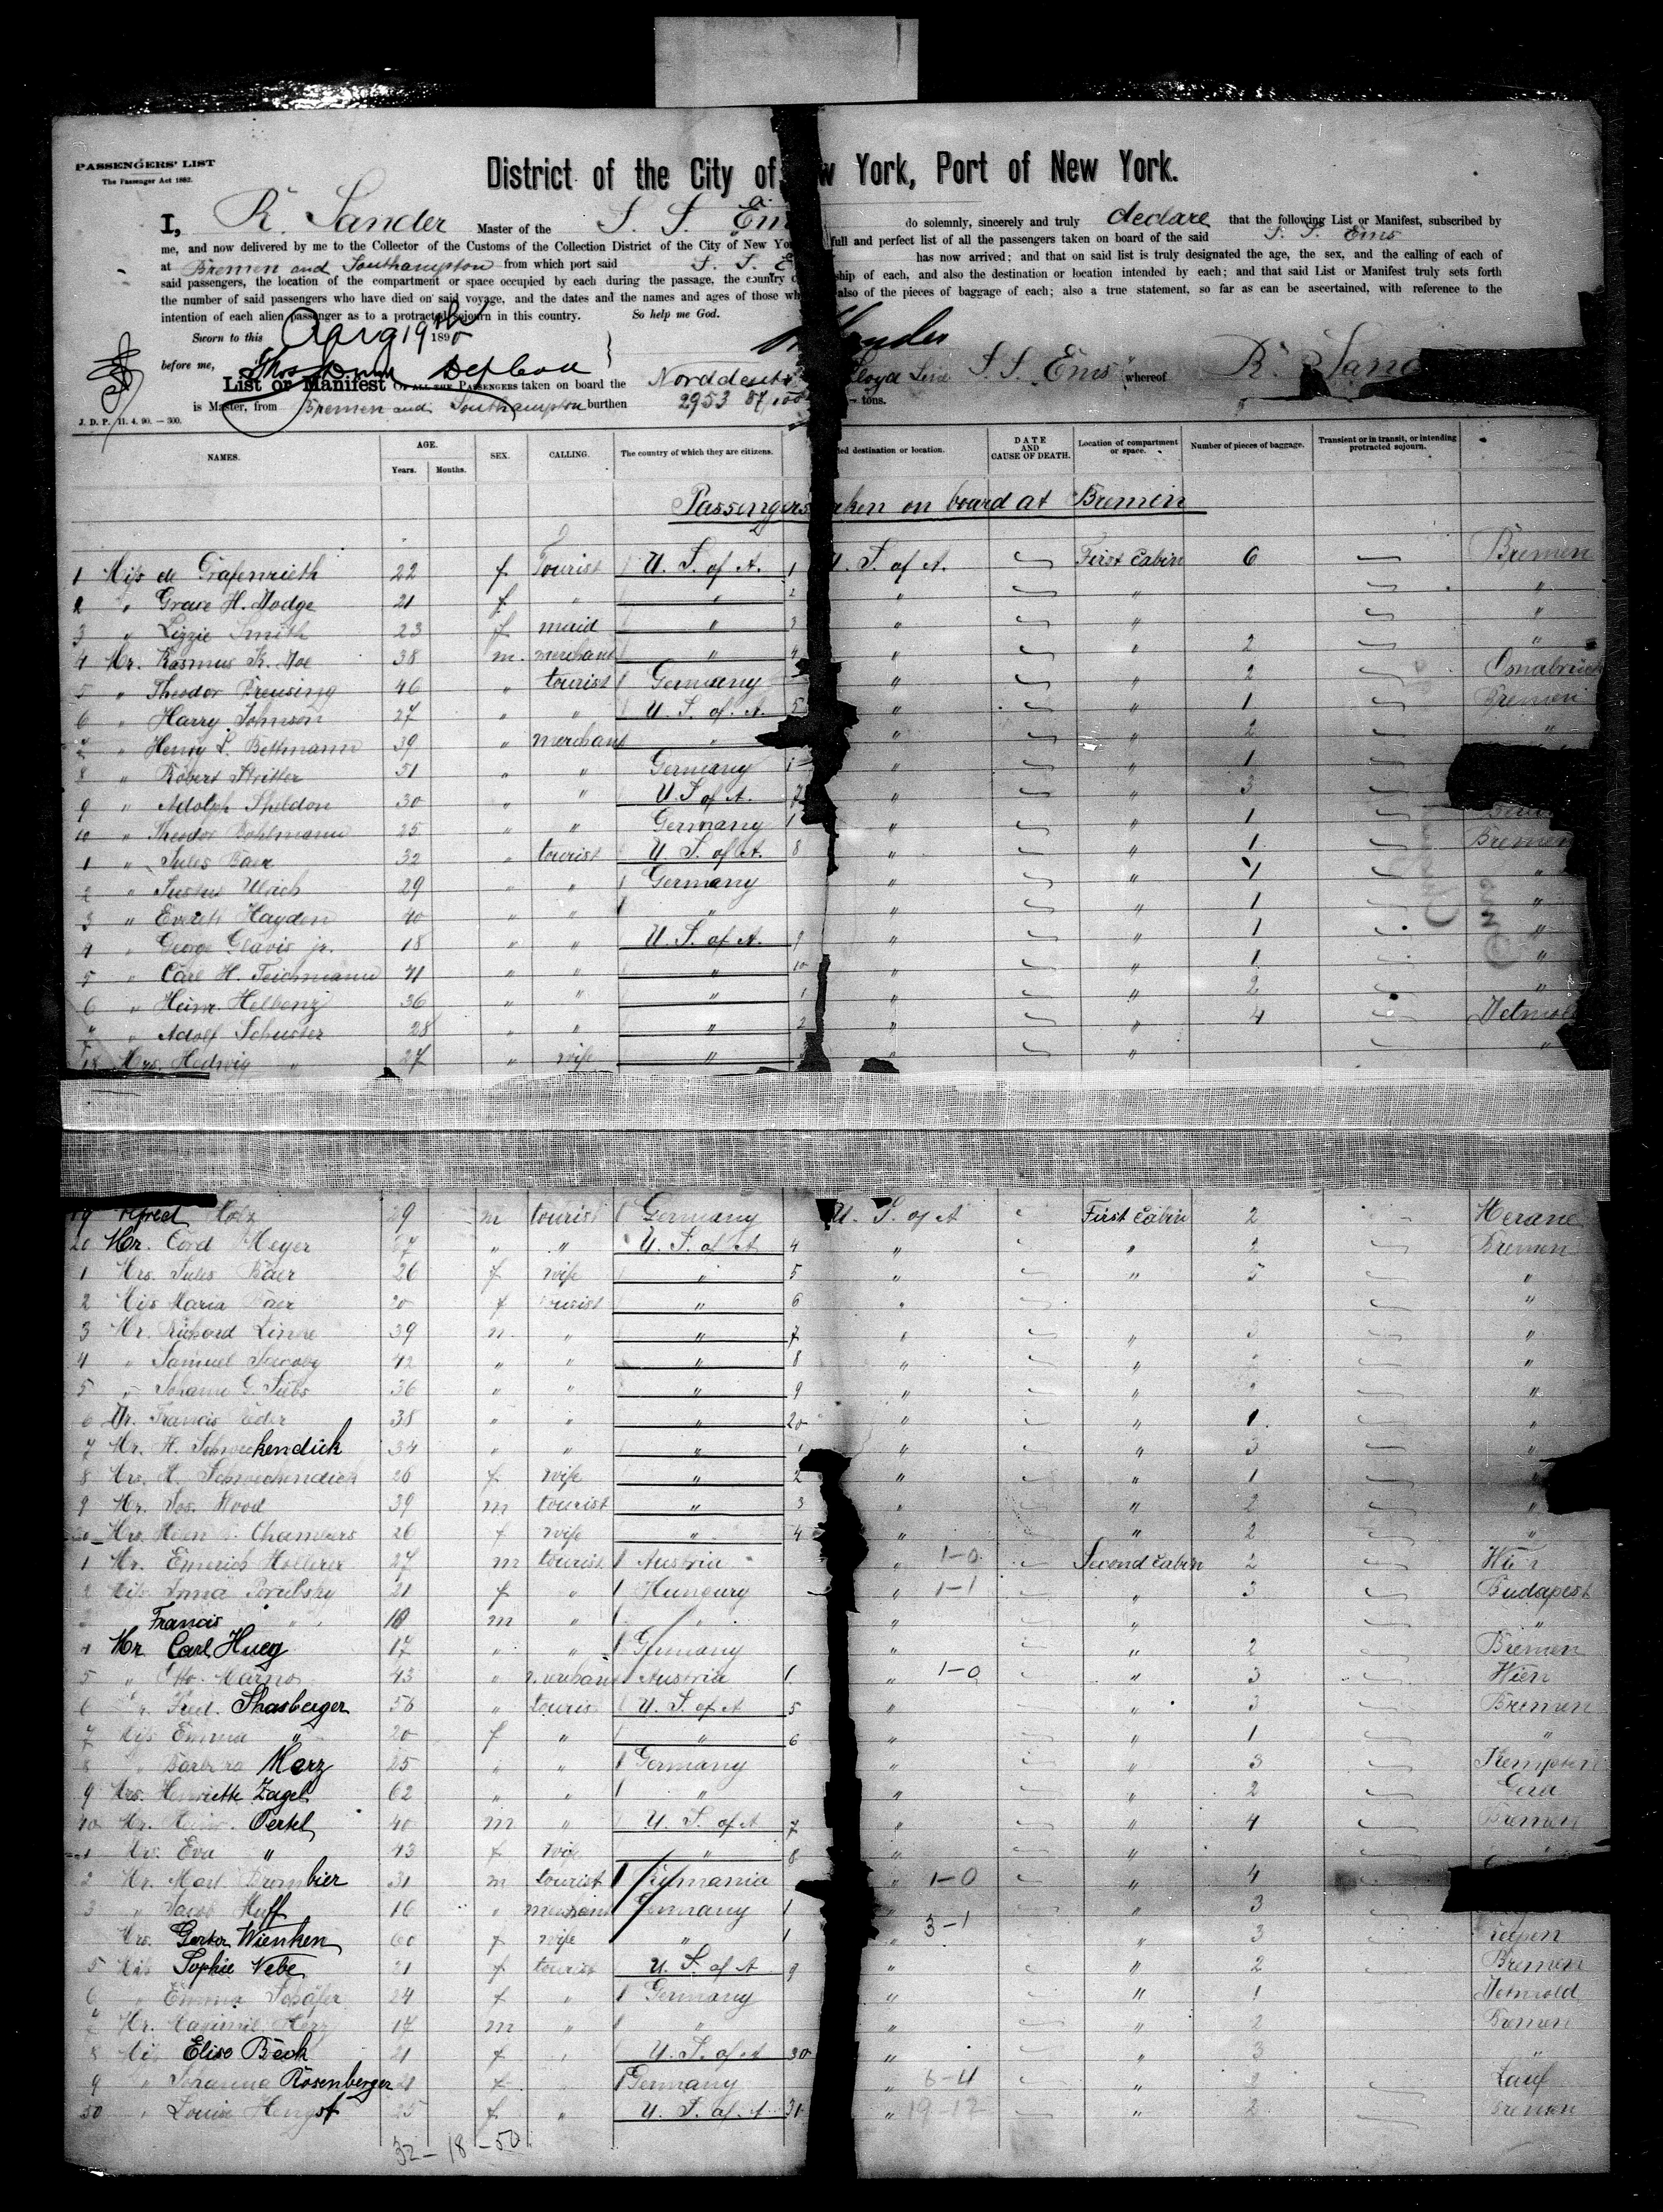 PASSENGERS' LIST
The Passenger Act 1882.
District of the City of w York, Port of New York.
I, R. Sander Master of the S. S. Em do solemnly, sincerely and truly declare that the following List or Manifest, subscribed by
me, and now delivered by me to the Collector of the Customs of the Collection District of the City of New Yo full and perfect list of all the passengers taken on board of the said S. S. Ems
at Bremen and Southampton from which port said S. S. E has now arrived; and that on said list is truly designated the age, the sex, and the calling of each of
said passengers, the location of the compartment or space occupied by each during the passage, the country ship of each, and also the destination or location intended by each; and that said List or Manifest truly sets forth
the number of said passengers who have died on said voyage, and the dates and the names and ages of those wh also of the pieces of baggage of each; also a true statement, so far as can be ascertained, with reference to the
intention of each alien passenger as to a protracted sojourn in this country. So help me God.
Sworn to this 19th 189
before me,
List or Manifest OF ALL THE PASSENGERS taken on board the Norddeuts Lloyd Line S. S. "Ems" whereof R. Sand
is Master, from Bremen and Southampton burthen 2953 87/100 tons.
J. D. P. 11. 4. 90. — 300.
NAMES. AGE. Years. Months. SEX. CALLING. The country of which they are citizens. ed destination or location. DATE AND CAUSE OF DEATH. Location of compartment or space. Number of pieces of baggage. Transient or in transit, or intending protracted sojourn.
Passengers aken on board at Bremen
1 Miss de Grafenrieth 22 f Tourist U. S. of A. 1 U. S. of A. First Cabin 6 Bremen
2 " Grace H. Dodge 21 f " " 2 " " "
3 " Lizzie Smith 23 f maid " 3 " " "
4 Mr. Rasmus R. Moe 38 m. merchant " 4 " " 2 "
5 " Theodor Breusing 46 " tourist Germany " " 2 Osnabrück
6 " Harry Johnson 27 " " U. S. of A. 5 " " 1 Bremen
" Henry L. Bettmann 39 " merchant " " " 2 "
8 " Robert Stritter 51 " " Germany 1 " " 1
9 " Adolph Sheldon 30 " " U. S of A. 7 " " 3
10 " Theodor Bohlmann 25 " " Germany 1 " " 1
1 " Jules Baer 32 " tourist U. S. of A. 8 " " 1 Bremen
2 " Justus Ulrich 29 " " Germany " " 1 "
3 " Everett Hayden 40 " " " " " 1 "
4 " George Glavis jr. 18 " " U. S. of A. 9 " " 1 "
5 " Carl H. Teichmann 41 " " " 10 " " 1 "
6 " Heinr. Helbenz 36 " " " 1 " " 2 "
" Adolf Schuster 28 " " " 2 " " 4 Detmol
18 Mrs. Hedwig " 27 " wife " " " "
19 Holz 29 m tourist Germany U. S. of A First Cabin 2 Merane
20 Mr. Cord Meyer 67 " " U. S. of A 4 " " 2 Bremen
1 Mrs. Jules Baer 26 f wife " 5 " " 5 "
2 Miss Maria Baer 20 f tourist " 6 " "
3 Mr. Richard Linde 39 m. " " 7 " " 3 "
4 " Samuel Jacoby 42 " " " 8 " " "
5 " Johann G. Siebs 36 " " " 9 " " "
6 Dr. Francis 38 " " " 20 " " 1 "
7 Mr. H. Schwekendick 34 " " " 1 " " 3 "
8 Mrs. H. Schweckendick 26 f wife " 2 " " 1 "
9 Mr. Jos. Wood 39 m tourist " 3 " " 2 "
30 Mrs. Helen Chambers 26 f wife " 4 " " 2 "
1 Mr. Emerich Hollerer 27 m tourist Austria " 1-0 Second Cabin 2 Wien
2 Miss Anna 21 f " Hungary " 1-1 " 3 Budapest
Francis " 10 m " " " " "
4 Mr. Carl Hueg 17 " " Germany " " 2 Bremen
5 " Otto Marno 43 " merchant Austria 1 " 1-0 " 3 Wien
6 Shasberger 56 " touris U. S. of A 5 " " 3 Bremen
7 Miss Emma " 20 f " " 6 " " 1 "
8 " Barbara Merz 25 " " Germany " " 3 Kempten
9 Mrs. Henriette Zagel 62 " " " " " 2 Gera
40 Mr. Heinr. Oertel 40 m " U. S. of A 7 " " 4 Bremen
1 Mrs. Eva " 43 f wife " 8 " "
2 Mr. Brombier 31 m tourist Rumania " 1-0 " 4
3 " Jacob Huff 16 " merchant Germany 1 " " 3
Mrs. Wienken 60 f wife " 1 " 3-1 " 3
5 Miss Sophie Nebe 21 f tourist U. S. of A 9 " " 2 Bremen
6 " Emma Schäfer 24 f " Germany " " 1 Detmold
7 Mr. Maximil. Herz 17 m " " " " 2 Bremen
8 Miss Elise Beck 21 f " U. S. of A 30 " " 3 "
9 " Johanna Rosenberger 21 f " Germany " 6-4 " 2 Lauf
50 " Louise Hengst 25 f " U. S. of A 31 " 19-12 " 2 Bremen
32-18-50